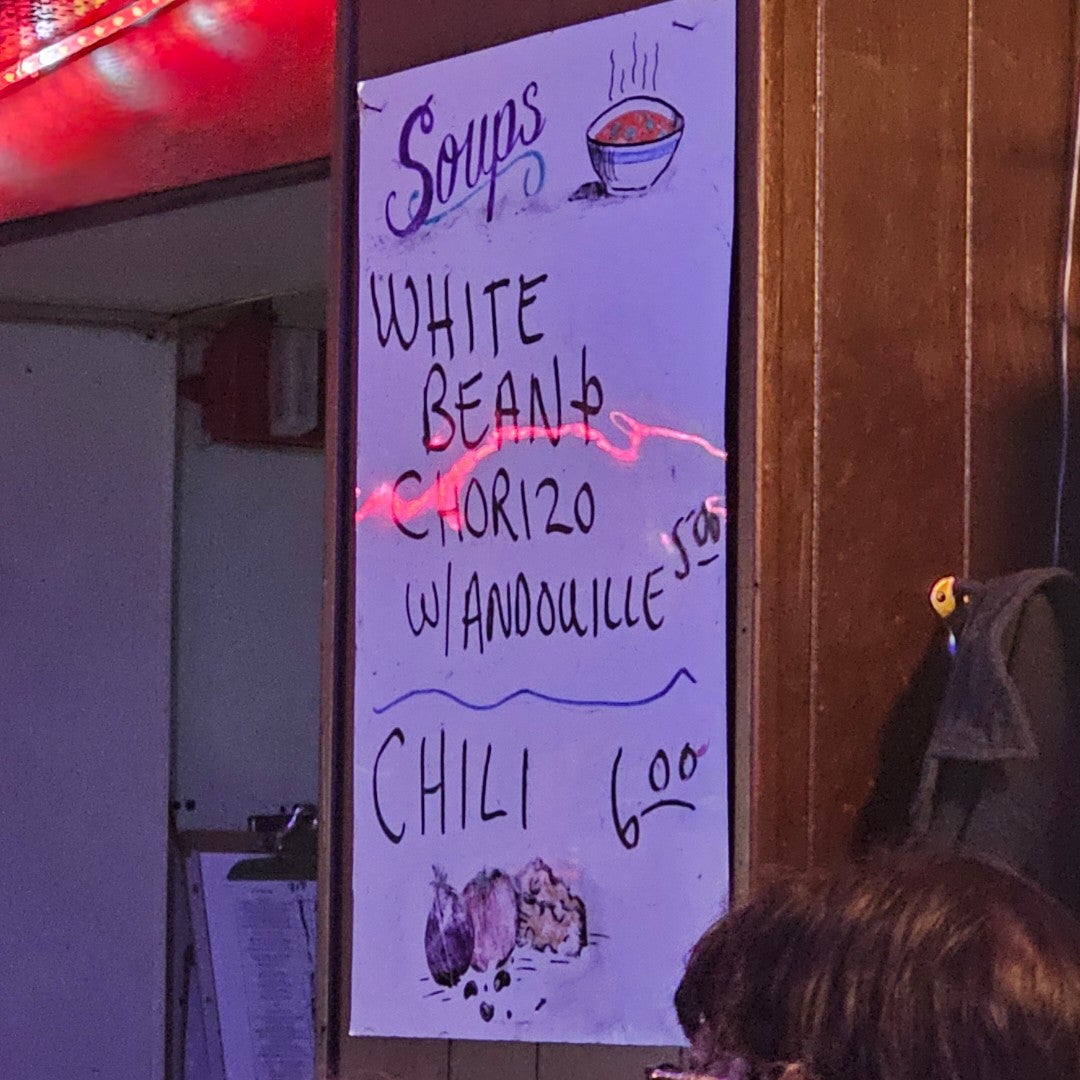 Soups
WHITE
BEAN &
CHORIZO
W/ANDOUILLE 5.00
CHILI 6.00